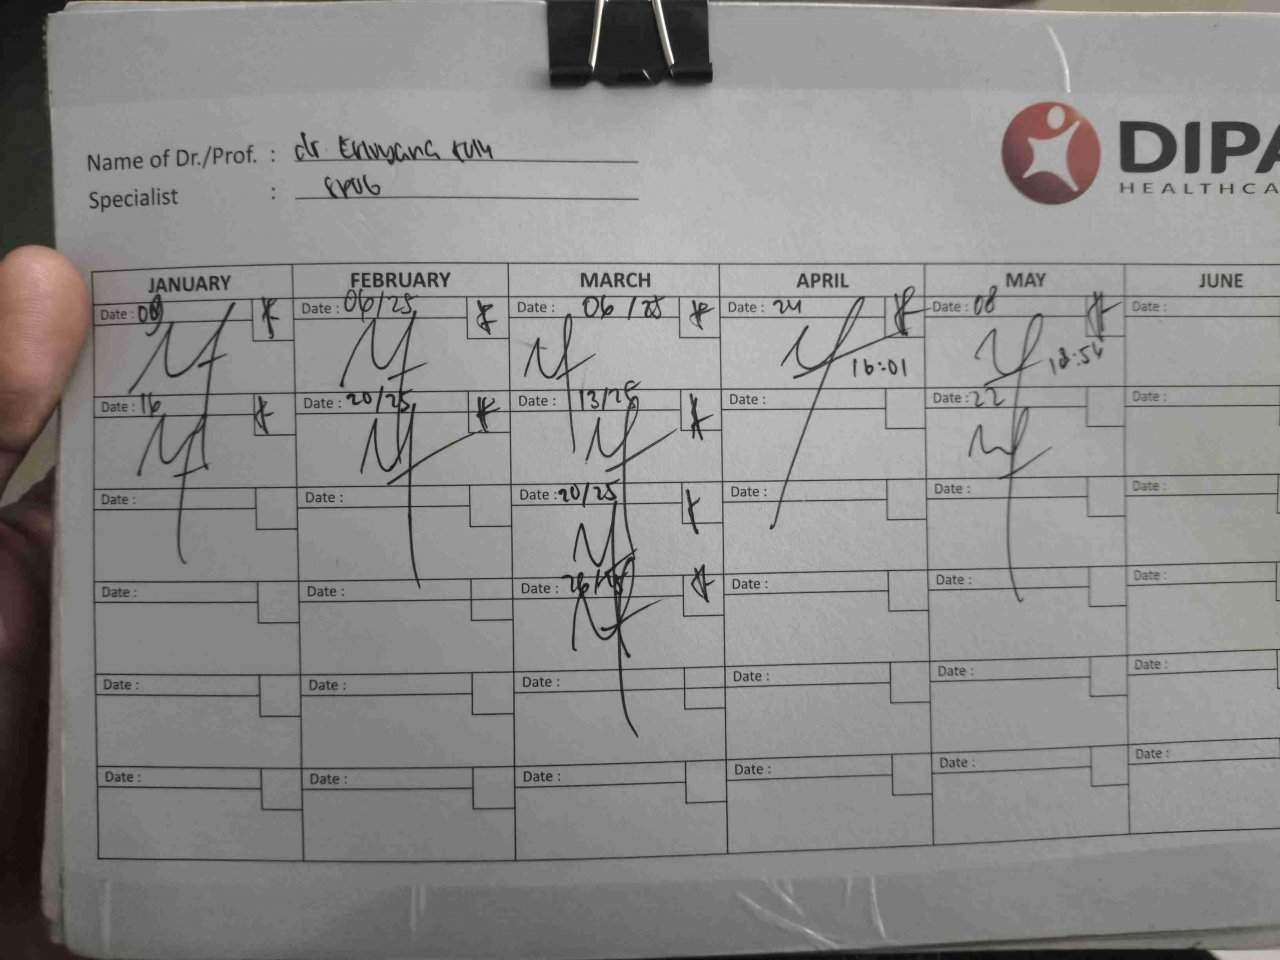 Name of Dr./Prof. : dr.
Specialist :
DIPA
HEALTHCA
JANUARY FEBRUARY MARCH APRIL MAY JUNE
Date : 09 Date : 06/25 Date : 06/25 Date : 24 Date : 08 Date :
16:01 18:54
Date : 16 Date : 20/25 Date : 13/25 Date : Date : 22 Date :
Date : Date : Date : 20/25 Date : Date : Date :
Date : Date : Date : 26/25 Date : Date : Date :
Date : Date : Date : Date : Date : Date :
Date : Date : Date : Date : Date : Date :